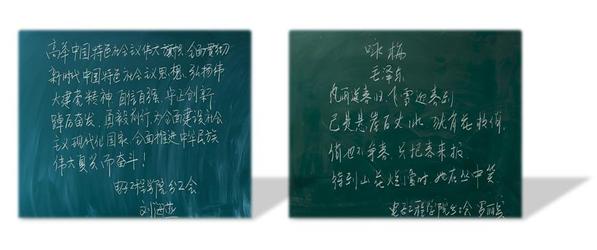 高举中国特色社会主义伟大旗帜，全面贯彻
新时代中国特色社会主义思想，弘扬伟
大建党精神，自信自强、守正创新
踔厉奋发、勇毅前行，为全面建设社会
主义现代化国家、全面推进中华民族
伟大复兴而奋斗！
电子工程学院分工会
刘海燕
咏梅
毛泽东
风雨送春归，飞雪迎春到
已是悬崖百丈冰，犹有花枝俏。
俏也不争春，只把春来报
待到山花烂漫时，她在丛中笑
电子工程学院分工会